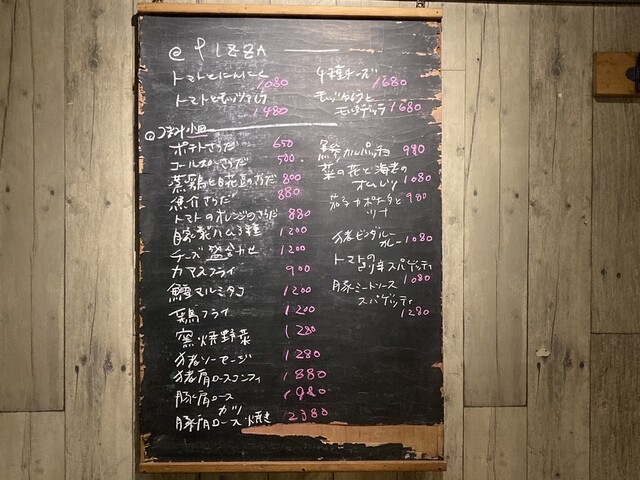 PIZZA
トマトとにんにく 1080
トマトとモッツァレラ 1480
4種チーズ 1680
モッツァレラと
モルタデッラ 1680
つまみ小皿
ポテトさらだ 650
コールスローさらだ 500
蒸鶏と白花豆のさらだ 800
魚介さらだ 880
トマトのオレンジのさらだ 880
自家製ハム3種 1200
チーズ盛合わせ 1200
カマスフライ 900
鱈マルミタコ 1200
鶏フライ 1200
窯焼野菜 1280
猪ソーセージ 1280
猪肩ロースコンフィ 1880
豚肩ロース 1980
カツ
豚肩ロース焼き 2380
カルパッチョ 980
菜の花と海老の
オムレツ 1080
茄子カポナータと 980
ツナ
猪ビンダルー
カレー 1080
トマトの
辛スパゲッティ
1080
豚ミートソース
スパゲッティ
1280